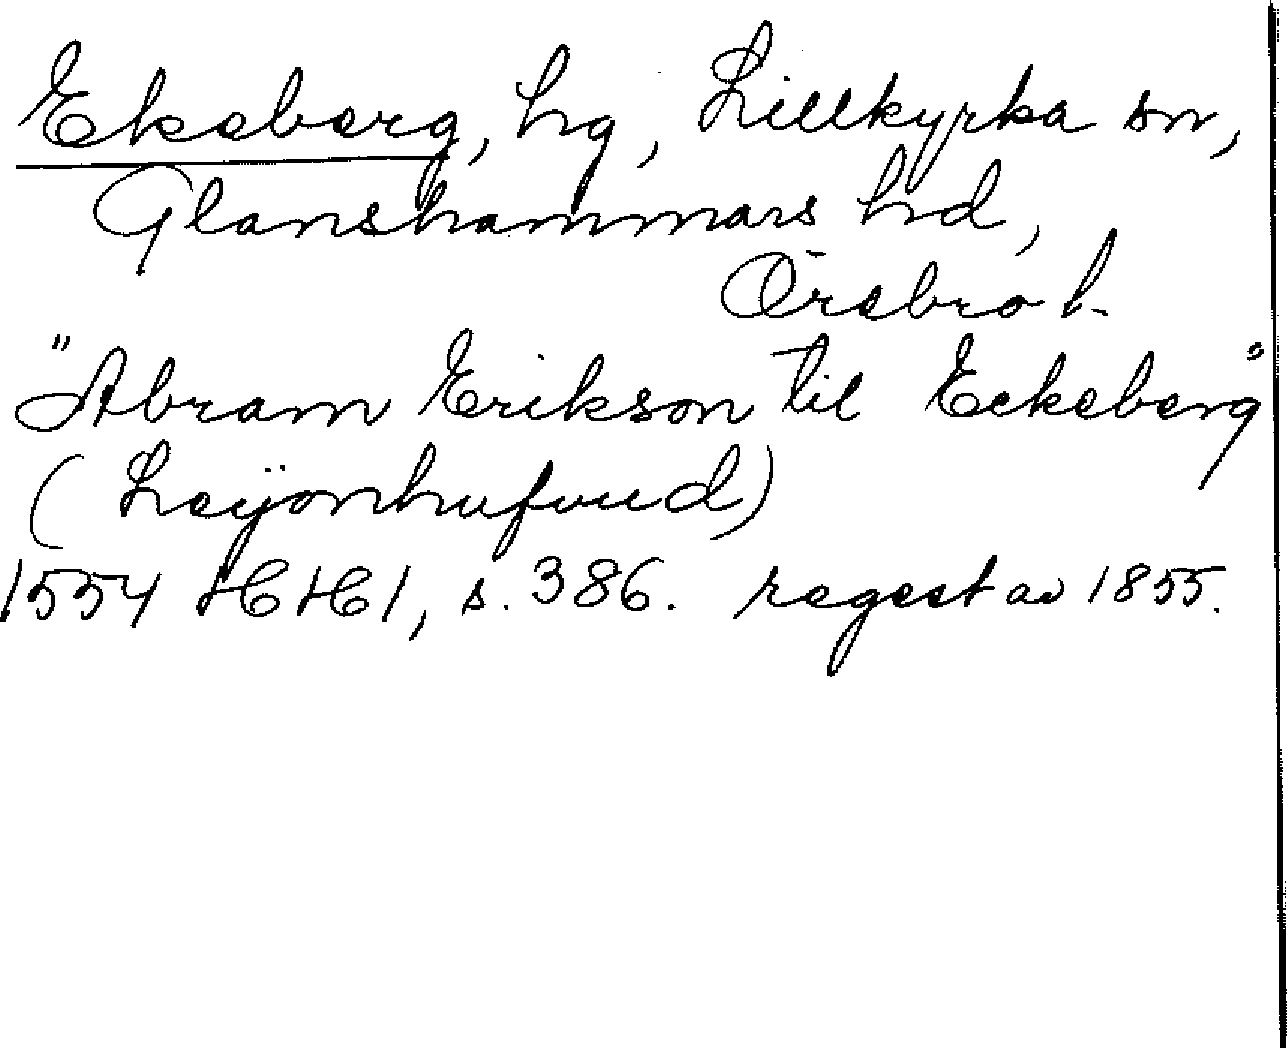 Ekeberg, hg, Lillkyrka sn,
Glanshammars hd,
Örebro l.
"Abram Erikson til Eckeberg"
(Leÿonhufvud)
1554 HH 1, s. 386. regest av 1855.